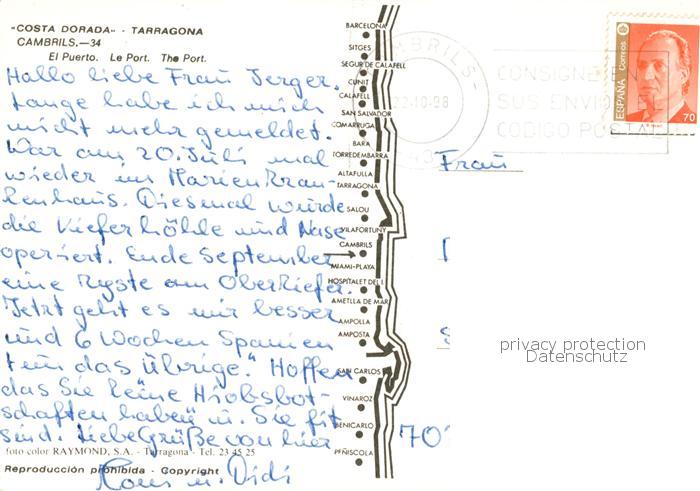 "COSTA DORADA" - TARRAGONA
CAMBRILS.—34
El Puerto. Le Port. The Port.
Hallo liebe Frau Jerger.
Lange habe ich mich
nicht mehr gemeldet.
War am 20. Juli mal
wieder im Marienkran-
kenhaus. Diesmal wurde
die Kieferhöhle und Nase
operiert. Ende September
eine Zyste am Oberkiefer.
Jetzt geht es mir besser
und 6 Wochen Spanien
tun das übrige." Hoffen
das Sie keine Hiobsbot-
schaften haben u. Sie fit
sind. Liebe Grüße von hier
foto color RAYMOND, S.A. - Tarragona - Tel. 23 45 25
Reproducción prohibida - Copyright
Hans u. Didi
BARCELONA
SITGES
SEGUR DE CALAFELL
CUNIT
CALAFELL
SAN SALVADOR
COMARRUGA
BARA
TORREDEMBARRA
ALTAFULLA
TARRAGONA
SALOU
VILAFORTUNY
CAMBRILS
MIAMI-PLAYA
HOSPITALET DEL I.
AMETLLA DE MAR
AMPOLLA
AMPOSTA
SAN CARLOS
VINAROZ
BENICARLO
PEÑISCOLA
CAMBRILS
22-10-98
43
CONSIGNE EN
SUS ENVIOS EL
CODIGO POSTAL
ESPAÑA Correos
70
Frau
70
privacy protection
Datenschutz